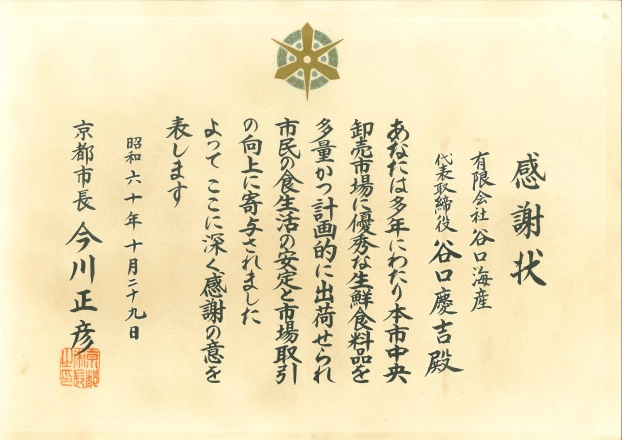 感謝状
有限会社 谷口海産
代表取締役 谷口慶吉殿
あなたは多年にわたり本市中央
卸売市場に優秀な生鮮食料品を
多量かつ計画的に出荷せられ
市民の食生活の安定と市場取引
の向上に寄与されました
よってここに深く感謝の意を
表します
昭和六十年十月二十九日
京都市長 今川正彦
京都市長之印